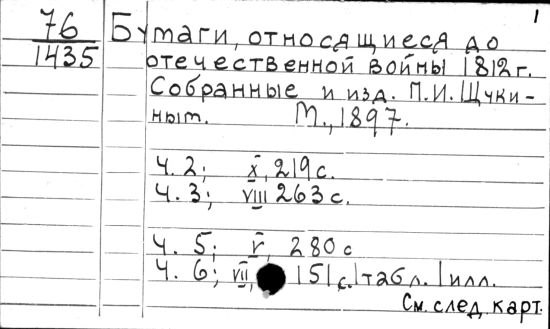 1
76
1435
Бумаги, относящиеся до
отечественной войны 1812 г.
Собранные и изд. П.И. Щуки-
ным. М., 1897.
Ч. 2; X, 219 с.
Ч. 3; VIII 263 с.
Ч. 5; V, 280 с
Ч. 6; VII, 151 с. 1 табл. 1 илл.
См. след. карт.